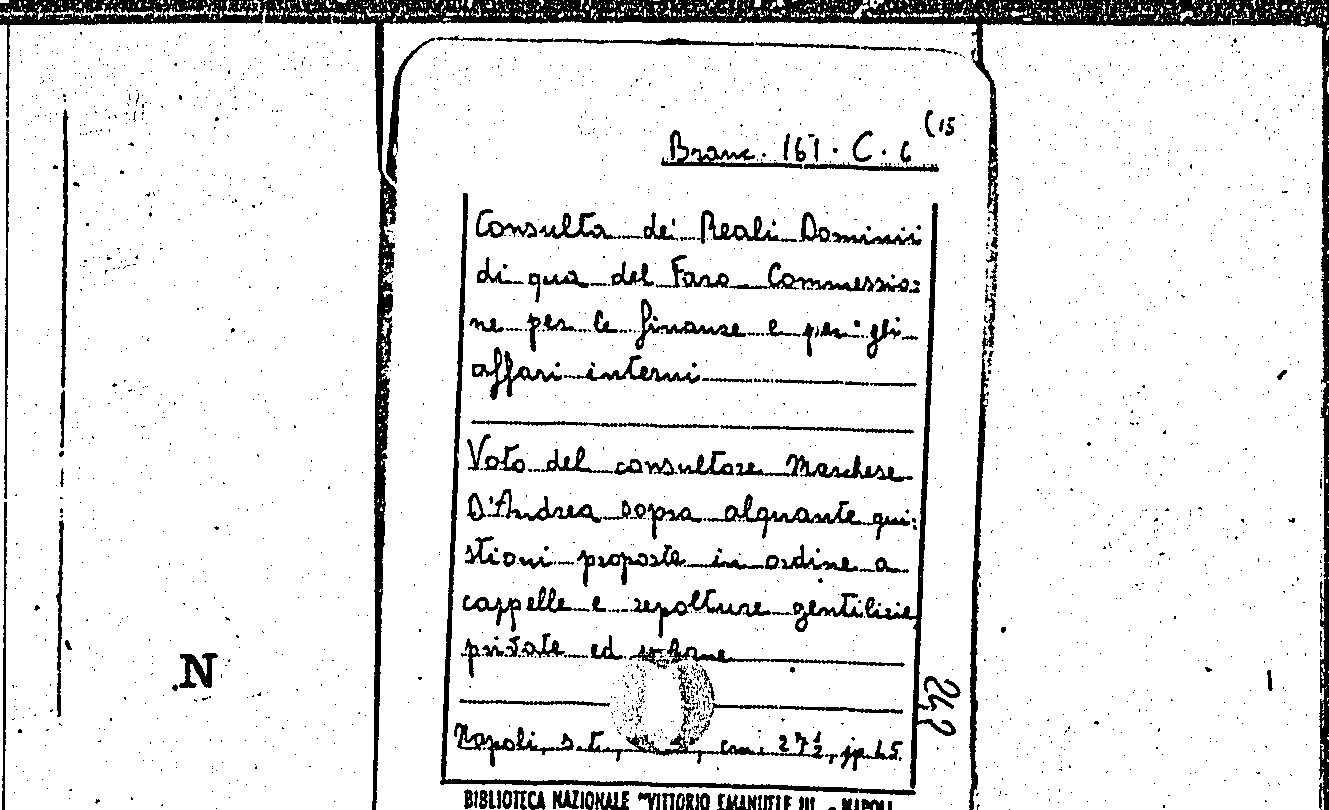 (15
Branc. 161. C. 6
Consulta dei Reali Dominii
di qua del Faro Commessio=
ne per le finanze e per gli
affari interni
Voto del consultore Marchese
D'Andrea sopra alquante qui:
stioni proposte in ordine a
cappelle e sepolture gentilizie
private ed urbane
242
Napoli, s.t., cm. 27½, pp. 15.
BIBLIOTECA NAZIONALE "VITTORIO EMANUELE III - NAPOLI
N